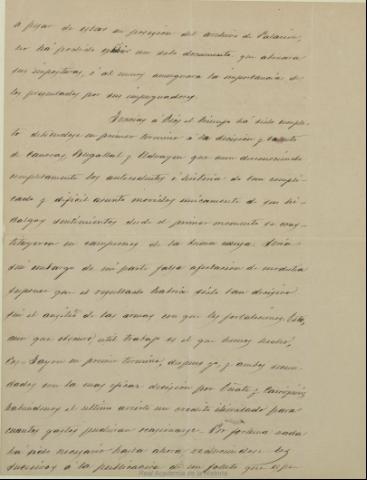 a pesar de estar en posesión del archivo de Palacio,
no ha podido exhibir un solo documento, que abonara
sus imposturas, ó al menos amenguara la importancia de
los presentados por sus impugnadores.
Gracias á Dios el triunfo ha sido comple-
to debiéndose en primer termino á la decisión y talento
de Canovas, Bugallal y que aun desconociendo
completamente los antecedentes é historia de tan compli-
cado y dificil asunto movidos únicamente de sus hi-
dalgos sentimientos desde el primer momento se cons-
tituyeron en campeones de la buena causa. Sería
sin embargo de mi parte falsa afectacion de modestia
suponer que el resultado habria sido tan decisivo
sin el auxilio de las armas con que les fortalecimos. Esto,
aun que obscuro, util trabajo es el que hemos hecho,
en primer término, despues yo, y ambos secun-
dados con la mas eficaz decisión por Oñate y
habiendonos el ultimo abierto un credito ilimitado para
cuantos gastos pudieran ocasionarse. Por fortuna nada
ha sido necesario hasta ahora reduciendose los
á la publicacion de un folleto que
Real Academia de la Historia